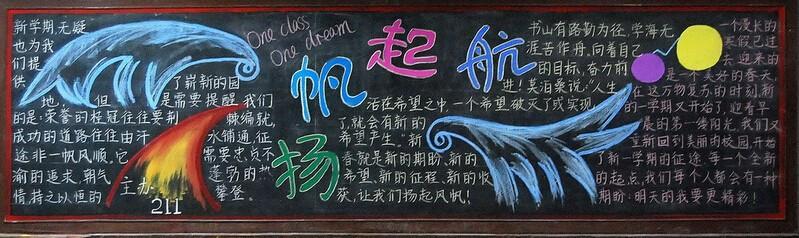 新学期,无疑
也为我
们提
供了崭新的园
地,但是需要提醒我们
的是:荣誉的桂冠往往要荆棘编就,
成功的道路往往由汗水铺通,征
途非一帆风顺,它需要忠贞不
渝的追求,朝气蓬勃的
情,持之以恒的攀登。
主办:
211
One class
One dream
扬帆起航
书山有路勤为径,学海无
涯苦作舟。向着自己
的目标,奋力前
进!吴泊乘说:“人生
活在希望之中,一个希望破灭了或实现
了,就会有新的
希望产生。”新
春就是新的期盼、新的
希望、新的征程、新的收
获,让我们扬起风帆!
一个漫长的
寒假已过
去迎来的
是一个美好的春天,
在这万物复苏的时刻,新
的一学期又开始了,迎着早
晨的第一缕阳光,我们又
重新回到美丽的校园,开始
了新一学期的征途。每一个全新
的起点,我们每个人都会有一种
期盼:明天的我要更精彩!